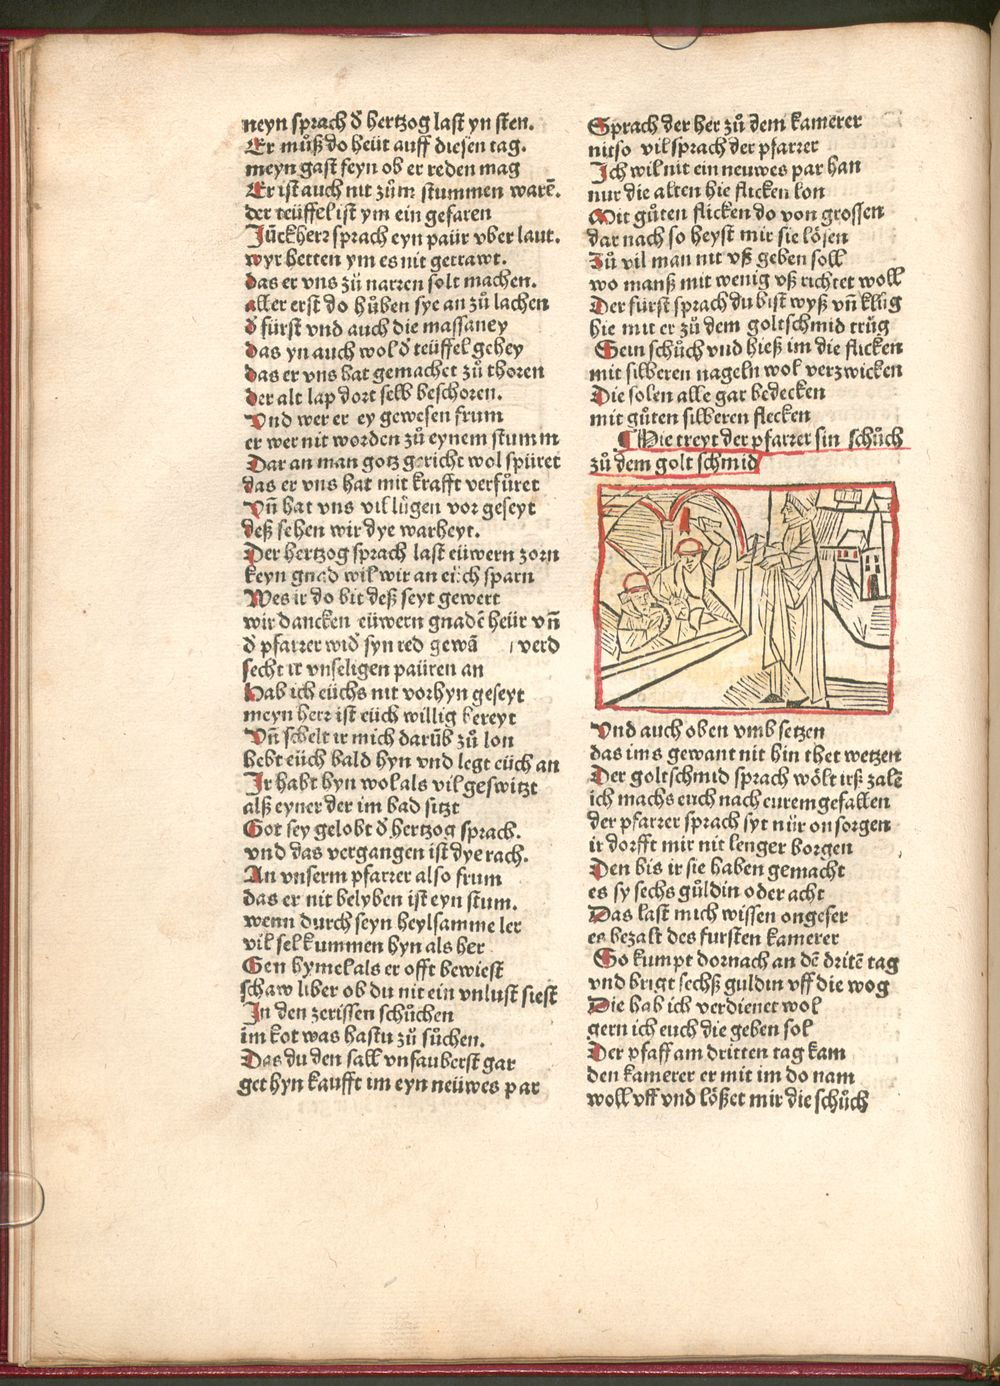 neyn sprach d̄ hertzog last yn sten.
Er můß do heüt auff diesen tag.
meyn gast seyn ob er reden mag
Er ist auch nit zům stummen warē.
der teüffel ist ym ein gefaren
Jűckherr sprach eyn paür vber laut.
wyr hetten ym es nit getrawt.
das er vns zů narren solt machen.
aller erst do hůben sye an zů lachen
d̄ fürst vnd auch die massaney
das yn auch wol d̄ teüffel gehey
das er vns hat gemachet zů thoren
der alt lap dort selb beschoren.
Vnd wer er ey gewesen frum
er wer nit worden zů eynem stumm
Dar an man gotz gericht wol spüret
das er vns hat mit krafft verfüret
Vn̄ hat vns vil lügen vor geseyt
deß sehen wir dye warheyt.
Der hertzog sprach last eüwern zorn
keyn gnad wil wir an eüch sparn
Wes ir do bit deß seyt gewert
wir dancken eüwern gnadē heür vn̄
d̄ pfarrer wid̄ syn red gewā verd
secht ir vnseligen paüren an
Hab ich eüchs nit vorhyn geseyt
meyn herr ist eüch willig bereyt
Vn̄ schelt ir mich darūb zů lon
hebt eüch bald hyn vnd legt eüch an
Ir habt hyn wol als vil geswitzt
alß eyner der im bad sitzt
Got sey gelobt d̄ hertzog sprach.
vnd das vergangen ist dye rach.
An vnserm pfarrer also frum
das er nit belyben ist eyn stum.
wenn durch seyn heylsamme ler
vil sel kummen hyn als her
Gen hymel als er offt bewiest
schaw liber ob du nit ein vnlust siest
In den zerissen schůchen
im kot was hastu zů sůchen.
Das du den sall vnsauberst gar
get hyn kaufft im eyn neüwes par
Sprach der her zů dem kamerer
nit so vil sprach der pfarrer
Ich wil nit ein neuwes par han
nur die alten hie flicken lon
Mit gůten flicken do von grossen
dar nach so heyst mir sie lösen
Zů vil man nit vß geben soll
wo manß mit wenig vß richtet woll
Der fürst sprach du bist wyß vn̄ klůg
hie mit er zů dem goltschmid trůg
Sein schůch vnd hieß im die flicken
mit silberen nageln wol verzwicken
Die solen alle gar bedecken
mit gůten silberen flecken
Hie treyt der pfarrer sin schůch
zů dem golt schmid
Vnd auch oben vmb setzen
das ims gewant nit hin thet wetzen
Der goltschmid sprach wölt irß zalē
ich machs euch nach eurem gefallen
der pfarrer sprach syt nür on sorgen
ir dorfft mir nit lenger borgen
Den bis ir sie haben gemacht
es sy sechs güldin oder acht
Das last mich wissen ongefer
es bezalt des fursten kamerer
So kumpt dornach an dē dritē tag
vnd brigt sechß guldin vff die wog
Die hab ich verdienet wol
gern ich euch die geben sol
Der pfaff am dritten tag kam
den kamerer er mit im do nam
woll vff vnd lößet mir die schůch